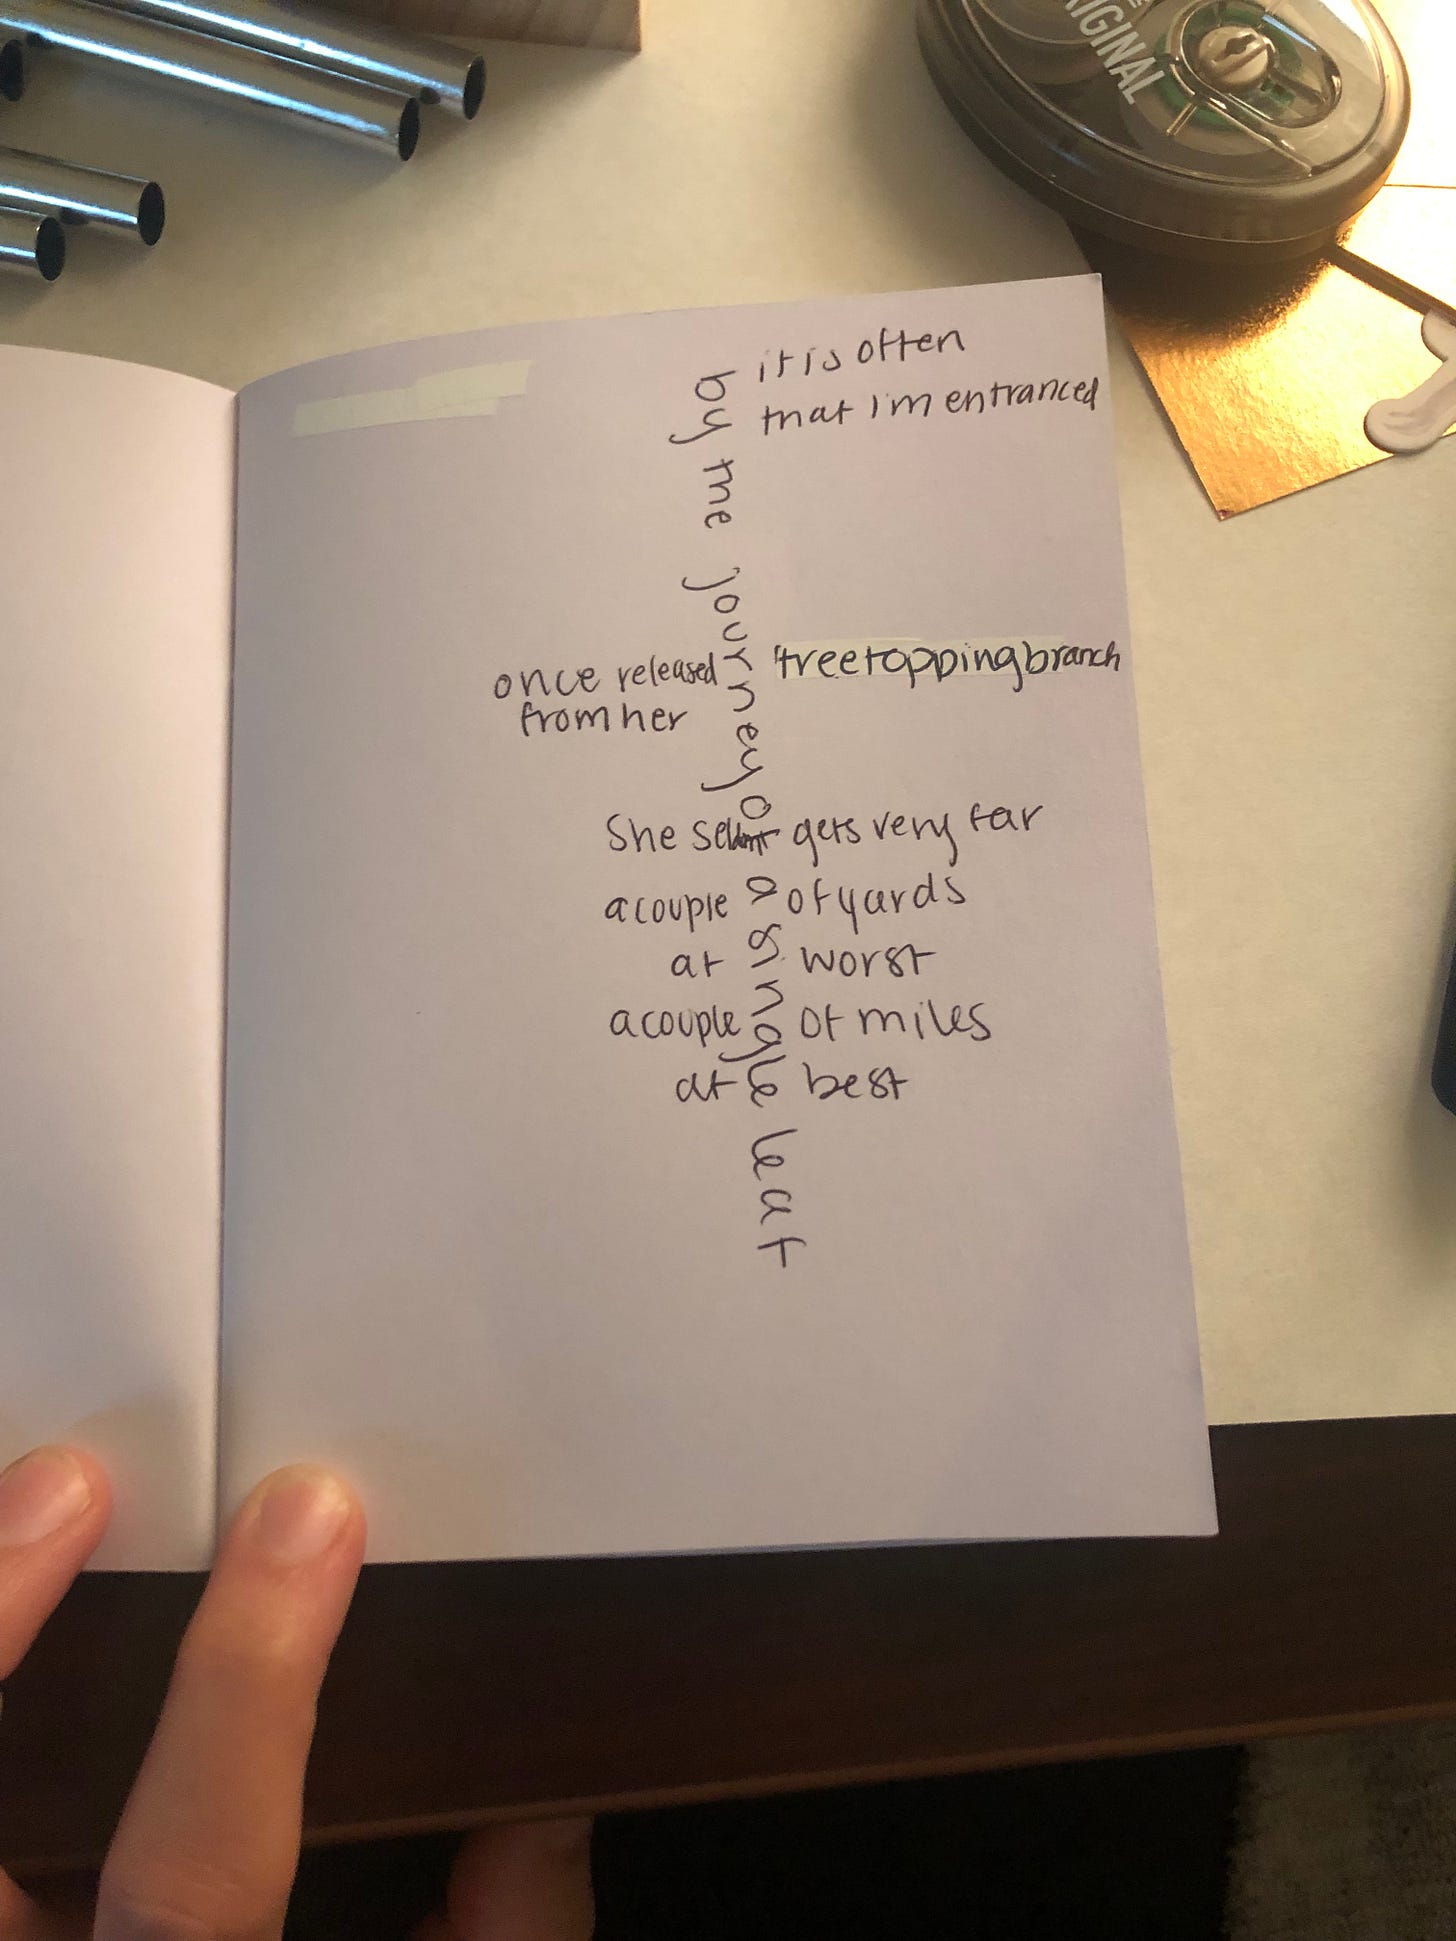 it is often
that I'm entranced
by the journey of a single leaf
once released treetopping branch
from her
She gets very far
a couple of yards
at worst
a couple of miles
at best
RIGINAL